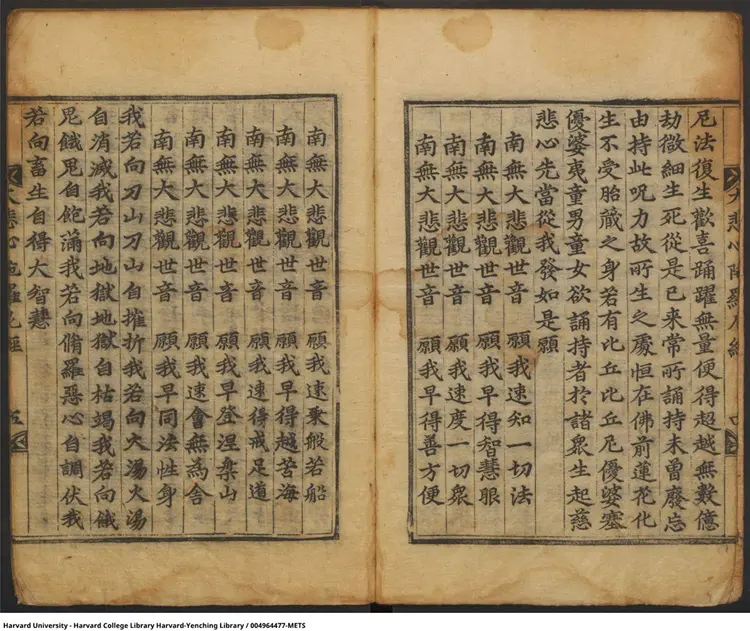 大悲心陀羅尼經
尼法復生歡喜踊躍無量便得超越無數億
劫微細生死從是已来常所誦持未曾廢忘
由持此呪力故所生之處恒在佛前蓮花化
生不受胎藏之身若有比丘比丘尼優婆塞
優婆夷童男童女欲誦持者於諸衆生起慈
悲心先當從我發如是願
南無大悲觀世音 願我速知一切法
南無大悲觀世音 願我早得智慧眼
南無大悲觀世音 願我速度一切衆
南無大悲觀世音 願我早得善方便
南無大悲觀世音 願我速乘般若船
南無大悲觀世音 願我早得越苦海
南無大悲觀世音 願我速得戒足道
南無大悲觀世音 願我早登涅槃山
南無大悲觀世音 願我速會無為舎
南無大悲觀世音 願我早同法性身
我若向刀山刀山自摧折我若向火湯火湯
自消滅我若向地獄地獄自枯竭我若向餓
鬼餓鬼自飽滿我若向脩羅惡心自調伏我
若向畜生自得大智慧
大悲心陀羅尼經 五
Harvard University - Harvard College Library Harvard-Yenching Library / 004964477-METS